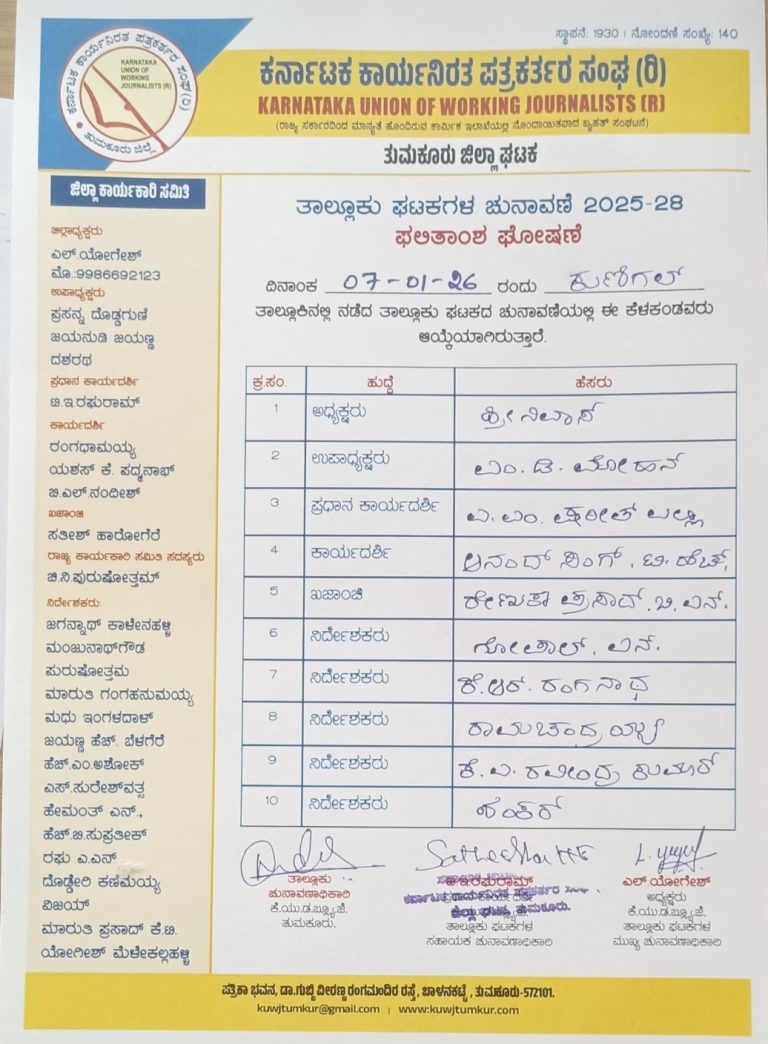 ಸ್ಥಾಪನೆ: 1930 | ನೋಂದಣಿ ಸಂಖ್ಯೆ: 140
ಕರ್ನಾಟಕ ಕಾರ್ಯನಿರತ ಪತ್ರಕರ್ತರ ಸಂಘ (ರಿ)
KARNATAKA UNION OF WORKING JOURNALISTS (R)
(ರಾಜ್ಯ ಸರ್ಕಾರದಿಂದ ಮಾನ್ಯತೆ ಹೊಂದಿರುವ ಕಾರ್ಮಿಕ ಇಲಾಖೆಯಲ್ಲಿ ನೊಂದಾಯಿತವಾದ ಬೃಹತ್ ಸಂಘಟನೆ)
ತುಮಕೂರು ಜಿಲ್ಲಾ ಘಟಕ
ಕರ್ನಾಟಕ ಕಾರ್ಯನಿರತ ಪತ್ರಕರ್ತರ ಸಂಘ (ರಿ)
KARNATAKA
UNION OF
WORKING
JOURNALISTS (R)
ತುಮಕೂರು ಜಿಲ್ಲೆ
ಜಿಲ್ಲಾ ಕಾರ್ಯಕಾರಿ ಸಮಿತಿ
ಜಿಲ್ಲಾಧ್ಯಕ್ಷರು
ಎಲ್.ಯೋಗೇಶ್
ಮೊ.:9986692123
ಉಪಾಧ್ಯಕ್ಷರು
ಪ್ರಸನ್ನ ದೊಡ್ಡಗುಣಿ
ಜಯನುಡಿ ಜಯಣ್ಣ
ದಶರಥ
ಪ್ರಧಾನ ಕಾರ್ಯದರ್ಶಿ
ಟಿ.ಇ.ರಘುರಾಮ್
ಕಾರ್ಯದರ್ಶಿ
ರಂಗಧಾಮಯ್ಯ
ಯಶಸ್ ಕೆ. ಪದ್ಮನಾಭ್
ಬಿ.ಎಲ್.ನಂದೀಶ್
ಖಜಾಂಚಿ
ಸತೀಶ್ ಹಾರೋಗೆರೆ
ರಾಜ್ಯ ಕಾರ್ಯಕಾರಿ ಸಮಿತಿ ಸದಸ್ಯರು
ಚಿ.ನಿ.ಪುರುಷೋತ್ತಮ್
ನಿರ್ದೇಶಕರು:
ಜಗನ್ನಾಥ್ ಕಾಳೇನಹಳ್ಳಿ
ಮಂಜುನಾಥ್‌ಗೌಡ
ಪುರುಷೋತ್ತಮ
ಮಾರುತಿ ಗಂಗಹನುಮಯ್ಯ
ಮಧು ಇಂಗಳದಾಳ್
ಜಯಣ್ಣ ಹೆಚ್. ಬೆಳಗೆರೆ
ಹೆಚ್.ಎಂ.ಅಶೋಕ್
ಎಸ್.ಸುರೇಶ್‌ವತ್ಸ
ಹೇಮಂತ್ ಎನ್.,
ಹೆಚ್.ಬಿ.ಸುಪ್ರತೀಕ್
ರಘು ಎ.ಎನ್
ದೊಡ್ಡೇರಿ ಕಣಿಮಯ್ಯ
ವಿಜಯ್
ಮಾರುತಿ ಪ್ರಸಾದ್ ಕೆ.ಟಿ.
ಯೋಗೀಶ್ ಮೆಳೇಕಲ್ಲಹಳ್ಳಿ
ತಾಲ್ಲೂಕು ಘಟಕಗಳ ಚುನಾವಣೆ 2025-28
ಫಲಿತಾಂಶ ಘೋಷಣೆ
ದಿನಾಂಕ 07-01-26 ರಂದು ಕುಣಿಗಲ್
ತಾಲ್ಲೂಕಿನಲ್ಲಿ ನಡೆದ ತಾಲ್ಲೂಕು ಘಟಕದ ಚುನಾವಣೆಯಲ್ಲಿ ಈ ಕೆಳಕಂಡವರು
ಆಯ್ಕೆಯಾಗಿರುತ್ತಾರೆ.
ಕ್ರ.ಸಂ. ಹುದ್ದೆ ಹೆಸರು
1 ಅಧ್ಯಕ್ಷರು ಶ್ರೀನಿವಾಸ್
2 ಉಪಾಧ್ಯಕ್ಷರು ಎಂ. ಡಿ. ಮೋಹನ್
3 ಪ್ರಧಾನ ಕಾರ್ಯದರ್ಶಿ ಎ. ಎಂ.
4 ಕಾರ್ಯದರ್ಶಿ ಆನಂದ್ ಸಿಂಗ್. ಟಿ. ಹೆಚ್.
5 ಖಜಾಂಚಿ ರೇಣುಕಾ ಪ್ರಸಾದ್. ಬಿ. ಎನ್.
6 ನಿರ್ದೇಶಕರು ಗೋಪಾಲ್. ಎನ್.
7 ನಿರ್ದೇಶಕರು ಕೆ.ಆರ್. ರಂಗನಾಥ
8 ನಿರ್ದೇಶಕರು ರಾಮಚಂದ್ರಯ್ಯ
9 ನಿರ್ದೇಶಕರು ಕೆ. ಎ. ರವೀಂದ್ರ ಕುಮಾರ್
10 ನಿರ್ದೇಶಕರು ಶಂಕರ್
ತಾಲ್ಲೂಕು
ಚುನಾವಣಾಧಿಕಾರಿ
ಕೆ.ಯು.ಡ.ಬ್ಲ್ಯೂಜೆ.
ತುಮಕೂರು.
ಟಿ.ಇ.ರಘುರಾಮ್
ಕರ್ನಾಟಕ ಕಾರ್ಯನಿರತ ಪತ್ರಕರ್ತರ ಸಂಘ
ಜಿಲ್ಲಾ ಘಟಕ, ತುಮಕೂರು.
ತಾಲ್ಲೂಕು ಘಟಕಗಳ
ಸಹಾಯಕ ಚುನಾವಣಾಧಿಕಾರಿ
ಎಲ್.ಯೋಗೇಶ್
ಅಧ್ಯಕ್ಷರು
ಕೆ.ಯು.ಡ.ಬ್ಲ್ಯೂಜೆ.
ತಾಲ್ಲೂಕು ಘಟಕಗಳ
ಮುಖ್ಯ ಚುನಾವಣಾಧಿಕಾರಿ
ಪತ್ರಿಕಾ ಭವನ, ಡಾ.ಗುಬ್ಬಿ ವೀರಣ್ಣ ರಂಗಮಂದಿರ ರಸ್ತೆ, ಬಾಳನಕಟ್ಟೆ, ತುಮಕೂರು-572101.
kuwjtumkur@gmail.com | www.kuwjtumkur.com